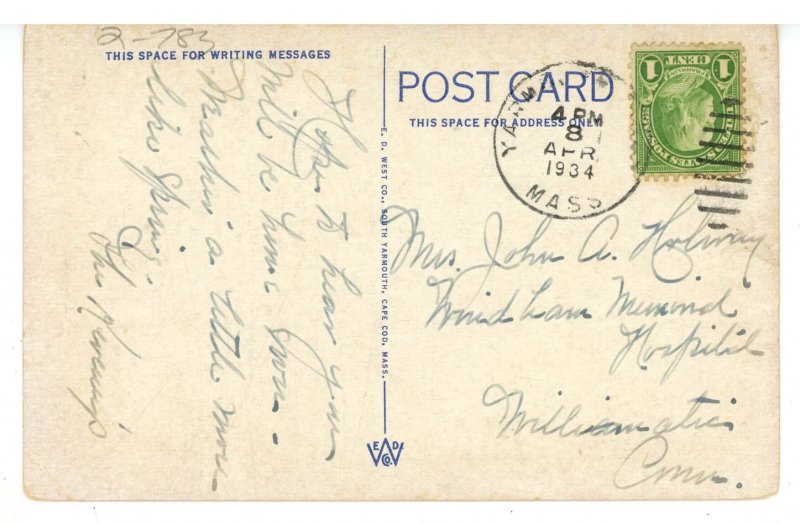 2-783
THIS SPACE FOR WRITING MESSAGES
Hope to hear you
will be home soon.
Weather a little more
like Spring
The
E. D. WEST CO., SOUTH YARMOUTH, CAPE COD, MASS.
E D
W
CO.
POST CARD
THIS SPACE FOR ADDRESS ONLY
YARM
4 PM
8
APR
1934
MASS
1 CENT 1
FRANKLIN
Mrs. John A. Holway
Windham Memorial
Hospital
Willimantic
Conn.